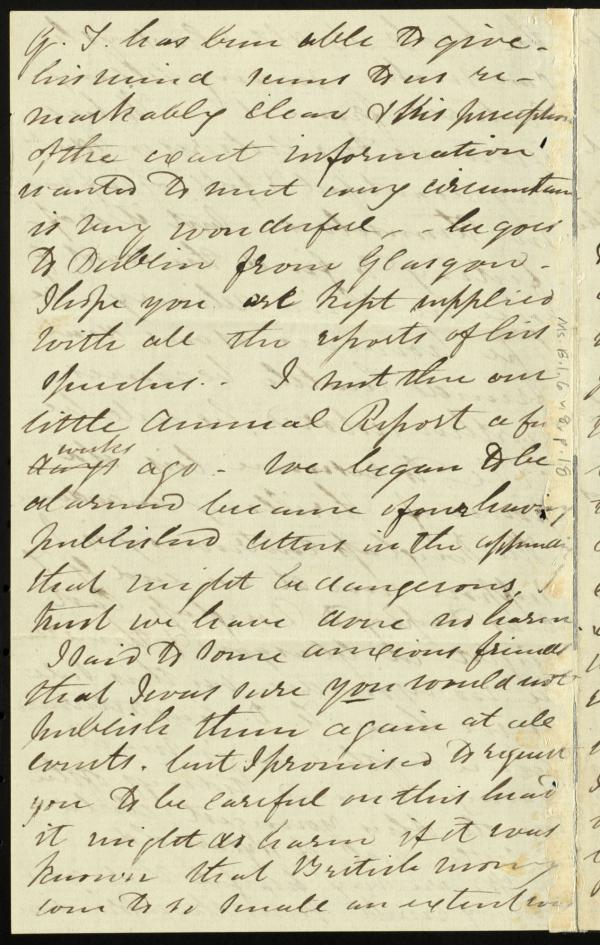 G. T. has been able to give -
his mind seems to us re-
markably clear & his perception
of the exact information
wanted to meet every circumstance
is very wonderful - - he goes
to Dublin from Glasgow -
I hope you are kept supplied
with all the reports of his
speeches. - I sent thee our
little Annual Report a few
weeks
days ago - We began to be
alarmed because of our having
published letters in the appendix
that might be dangerous, I
trust we have done no harm
I said to some anxious friends
that I was sure you would not
publish them again at all
events. but I promised to request
you to be careful on this head
it might do harm if it was
known that British money
even to so small an extent was
Ms. B.1.6 v.2, p.18